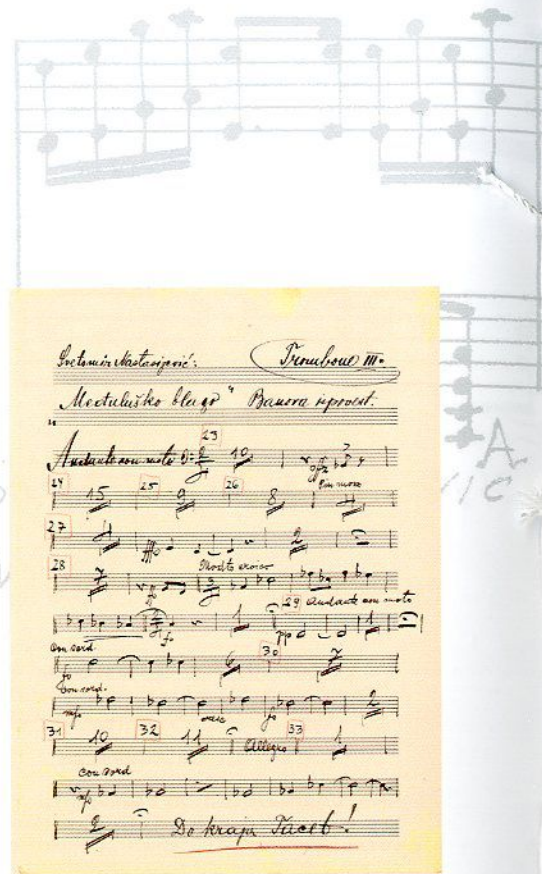 Svetomir Nastasijević: Trombone III.
"Međuluško blago" Banova ispovest.
23
Andante con moto 10
24 15 25 9 26 8
27 4 fff 2
28 7 Modto eroico
29 Andante con moto
1 pp 1
Con sord.
fo 6 30 7
Con sord.
mfo 2
31 10 32 11 Allegro 33 1
con sord
mfo
2 Do kraja Tacet!